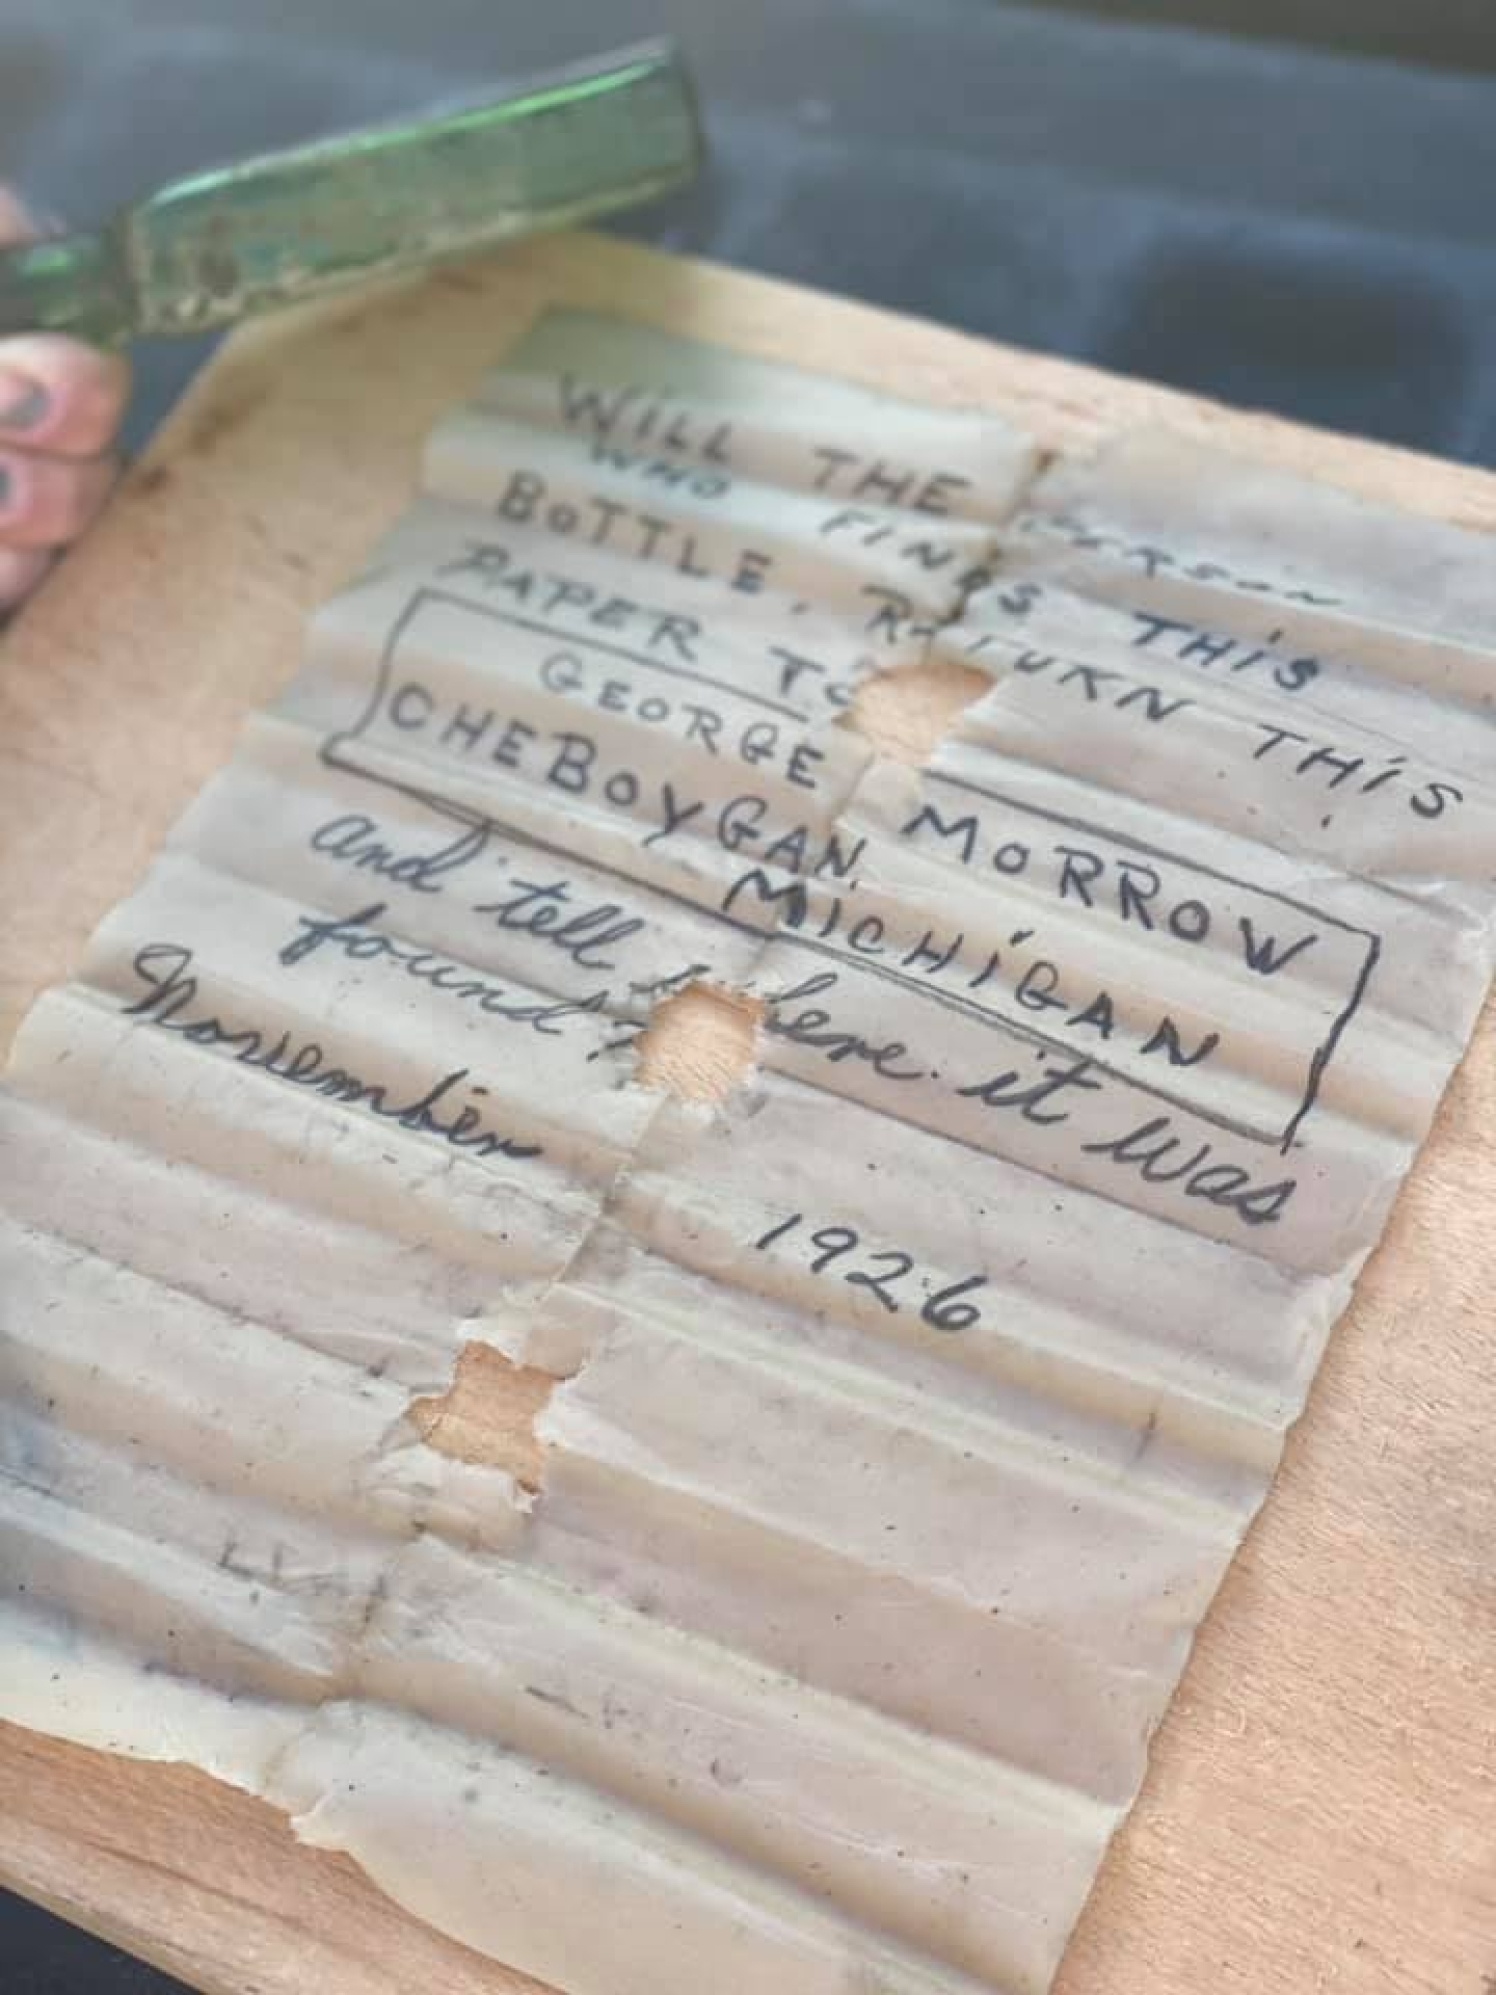 WILL THE PERSON
WHO FINDS THIS
BOTTLE, RETURN THIS
PAPER TO
GEORGE MORROW
CHEBOYGAN,
MICHIGAN
and tell where it was
found?
November
1926